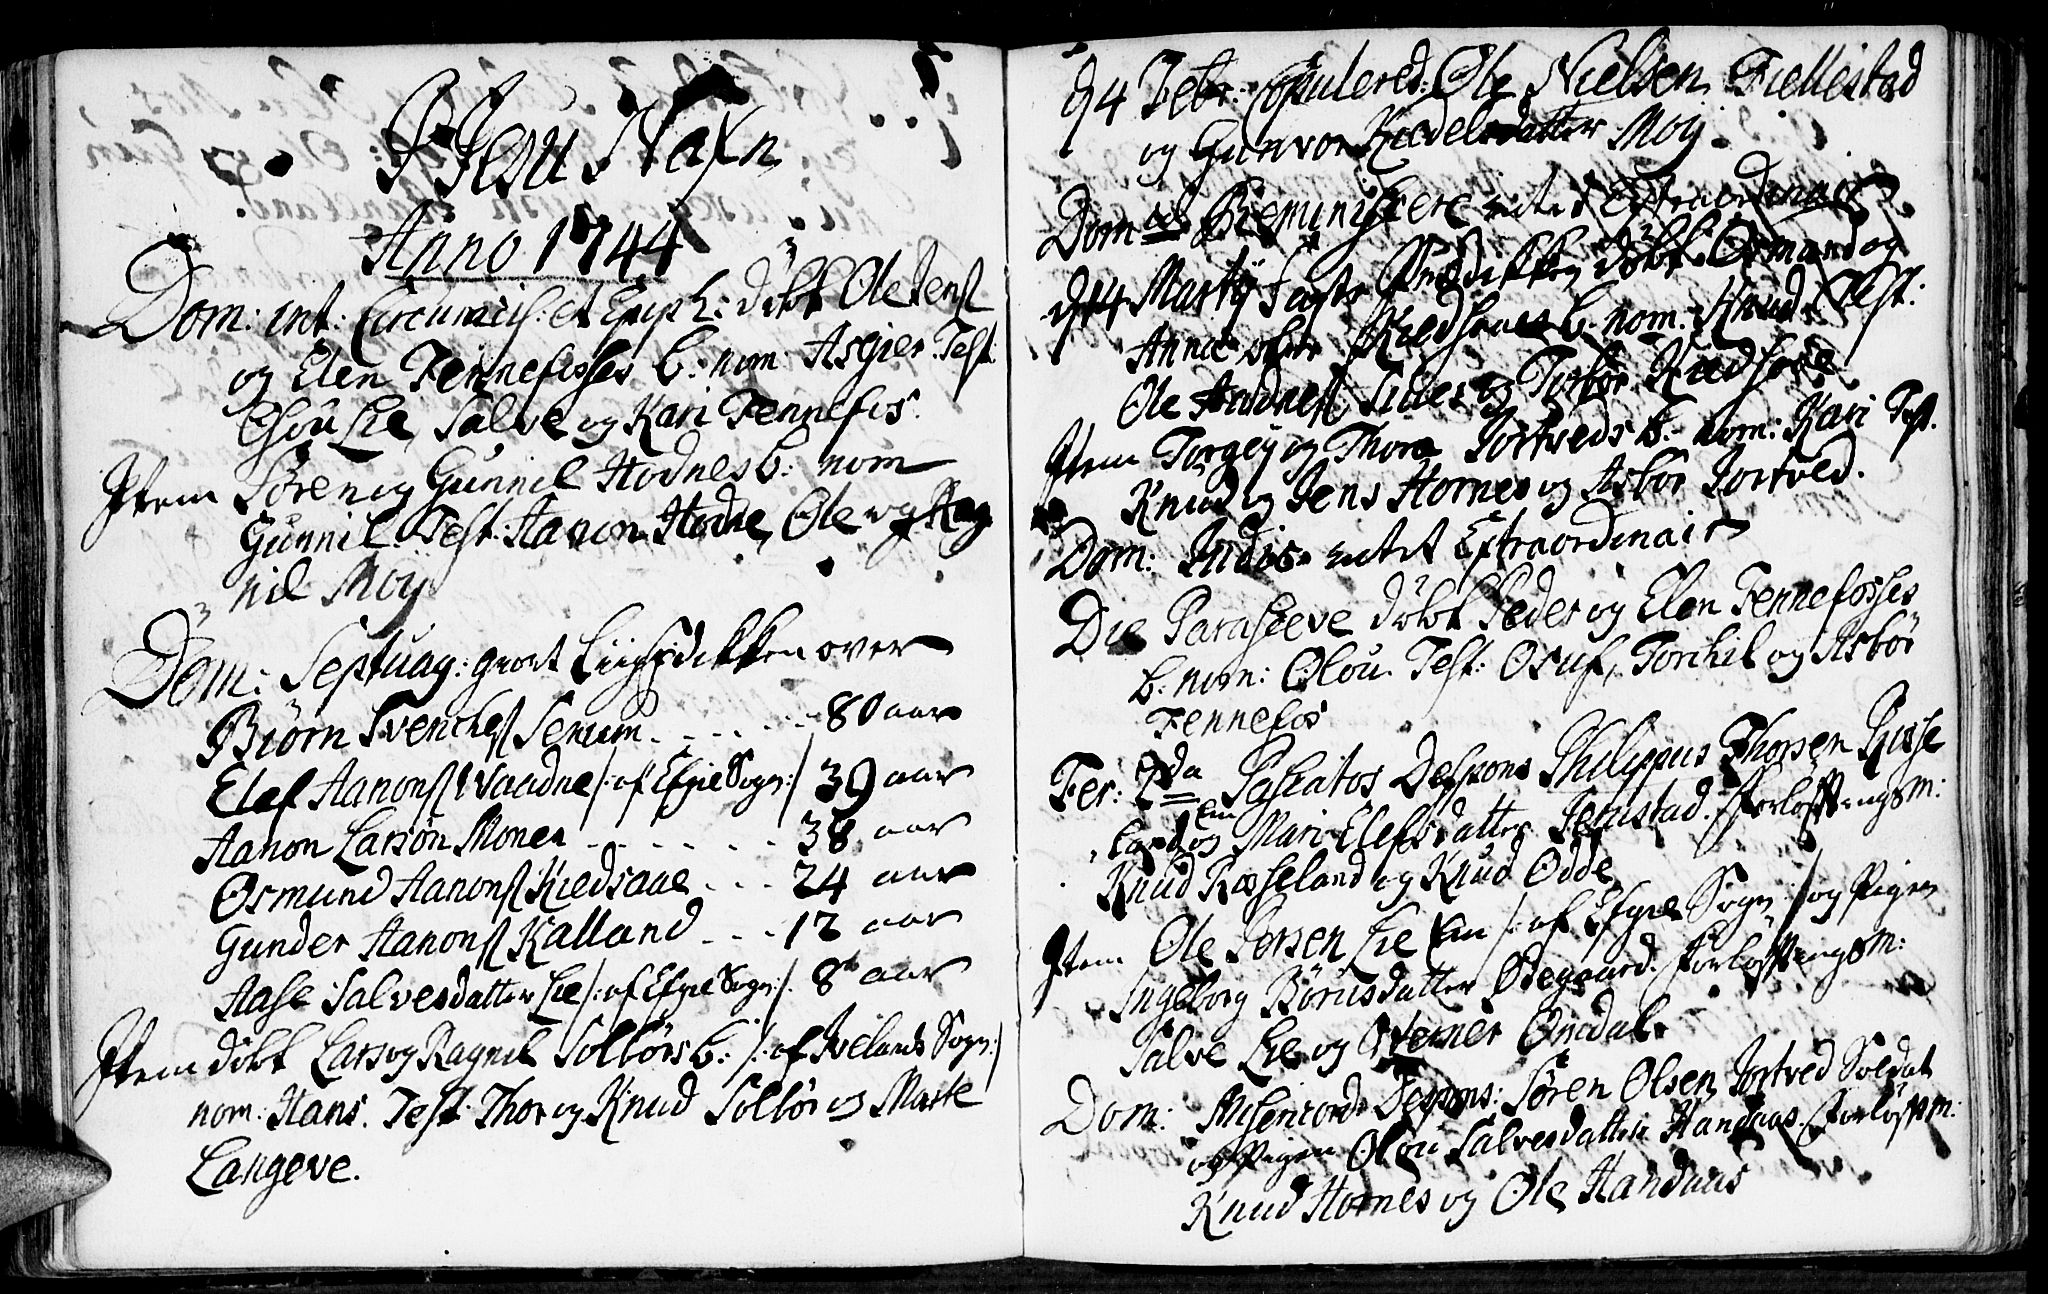 I Jesu Nafn
Anno 1744
Dom: int: Circumcis: et Epiph: döbt Ole Jens
og Elen Fennefosses b: nom: Asgier. Test:
Lie, Salve og Kari Fennefos.
Item Sören og Gunnil Hodnes b: nom
Gunnil. Test: Hanon Hodne, Ole og Rag
nil Moÿ
Dom: Septuag: giort Liigprdikken over
Biörn Svenches Senum. - - - - 80 aar
Elef Aanons Vaadne /: af Efgie Sogn :/ 39 aar
Aanon Larsön Monen - - - - - - 38 aar
Osmund Aanons Kiedsaae - - - 24 aar
Gunder Aanons Kalland - - - 12 aar
Aase Salvesdatter Lie /: af Efgie Sogn :/. 8 aar
Item döbt Lars og Ragnil Solbörs b: /: af Ivelands Sogn :/
nom: Hans. Test: Thor og Knud Solbör og Marte
Langeve.
d 4 Febr: Copulered: Ole Nielsen Fiellestad
og Gunvor Kiedelsdatter Moÿ.
Dom Reminiscere intet Extraordinair
d 14 Martÿ Faste Prædikken döbt Osmund og
Anna Kiedsaaes b. nom: Knud. Test:
Ole og Torbör Kiedsaae
Item Torgey og Thora Jortveds b: nom: Kari Test.
Knud og Jens Hornes og Asbör Jortved.
Dom: Judic: intet Extraordinair
Die Parasceve döbt Peder og Elen Fennefosses
b: nom: Olou. Test: Osuf, Torkil og Asbör
Fennefos
Fer: 2da Paschatos Despons Philippus Thorsen Rosse
land og Mari Elefsdatter Senustad. Forlofftengsm:
Knud Rosseland og Knud Odde
Item Ole Persen Lie /: af Efgie Sogn :/ og Pigen
Ingeborg Börusdatter Ödegaard. Forlofftengsm:
Salve Lie og Omdal
Dom: Misericord: Despons: Sören Olsen Jortved Soldat
og Pigen Olou Salvesdatter Handaas. Forlofftm:
Knud Hornes og Ole Handaas